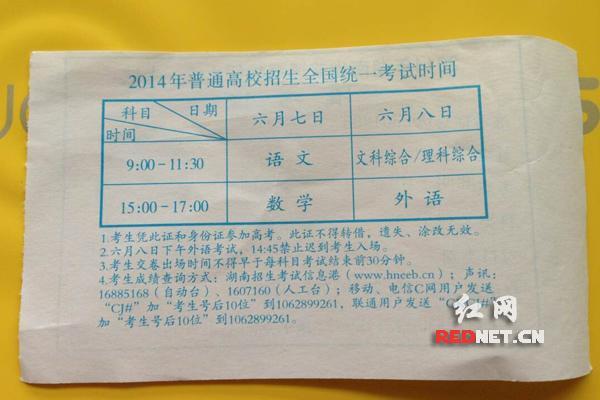 2014年普通高校招生全国统一考试时间
科目 日期 时间 六月七日 六月八日
9:00-11:30 语文 文科综合/理科综合
15:00-17:00 数学 外语
1.考生凭此证和身份证参加高考。此证不得转借，遗失、涂改无效。
2.六月八日下午外语考试，14:45禁止迟到考生入场。
3.考生交卷出场时间不得早于每科目考试结束前30分钟。
4.考生成绩查询方式：湖南招生考试信息港（www.hneeb.cn）；声讯：
16885168（自动台）、1607160（人工台）；移动、电信C网用户发送
“CJ#”加“考生号后10位”到1062899261，联通用户发送
加“考生号后10位”到1062899261。
红网
REDNET.CN